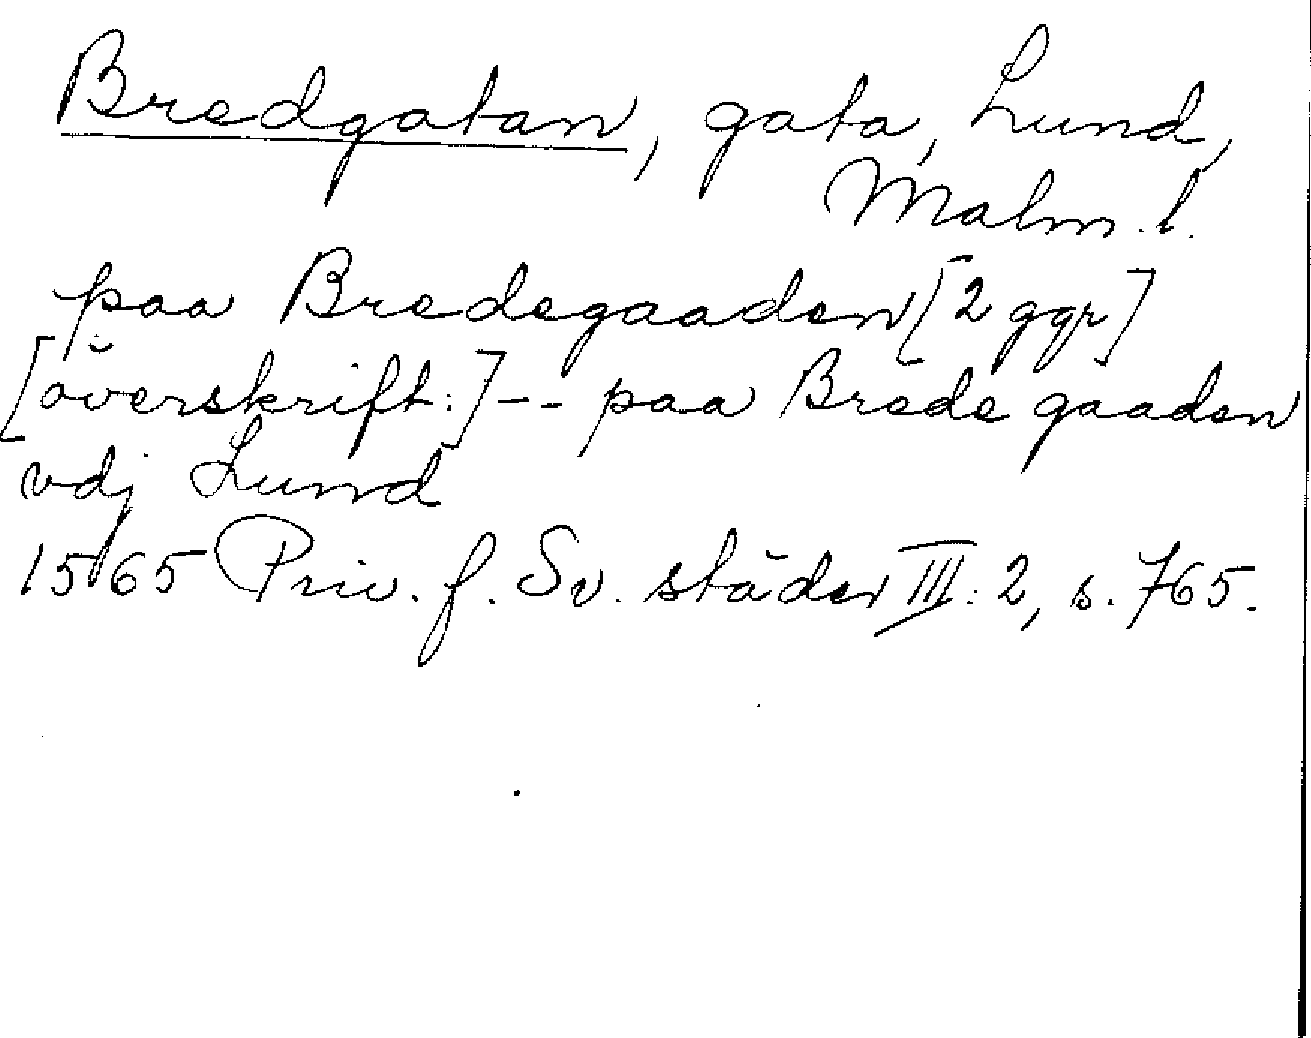 Bredgatan, gata, Lund,
Malm. l.
paa Bredegaaden [2 ggr]
[överskrift:] - - paa Brede gaaden
vdj Lund
1565 Priv. f. Sv. städer III: 2, s. 765.